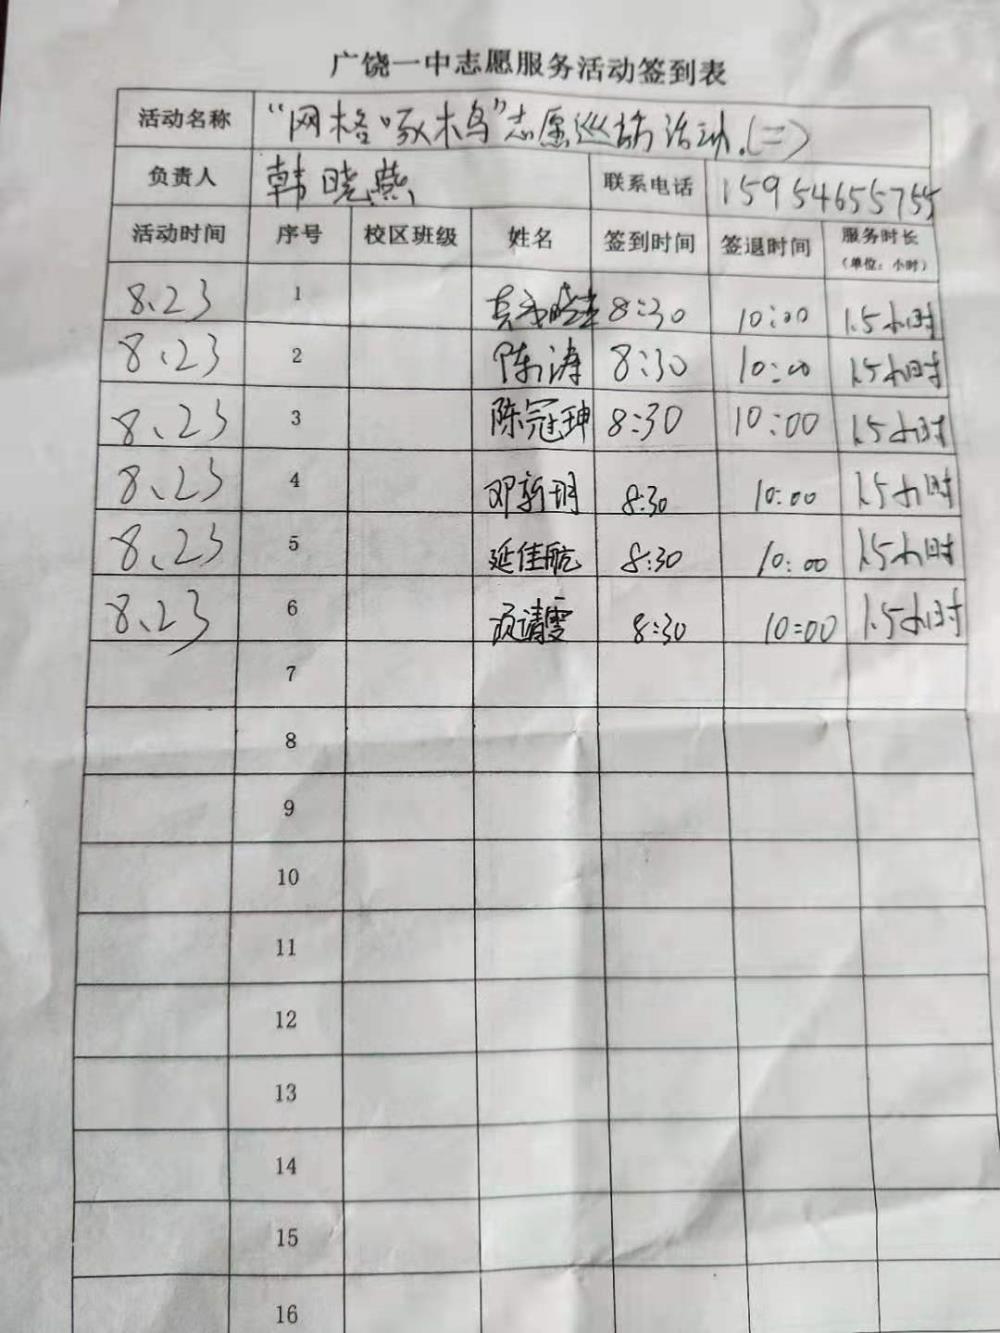 广饶一中志愿服务活动签到表
活动名称 “网格啄木鸟”志愿巡访活动.(二)
负责人 韩晓燕 联系电话 15954655755
活动时间 序号 校区班级 姓名 签到时间 签退时间 服务时长
(单位：小时)
8、23 1 8:30 10:00 1.5小时
8、23 2 陈涛 8:30 10:00 1.5小时
8、23 3 陈冠珅 8:30 10:00 1.5小时
8、23 4 邓新明 8:30 10:00 1.5小时
8、23 5 延佳航 8:30 10:00 1.5小时
8、23 6 8:30 10:00 1.5小时
7
8
9
10
11
12
13
14
15
16